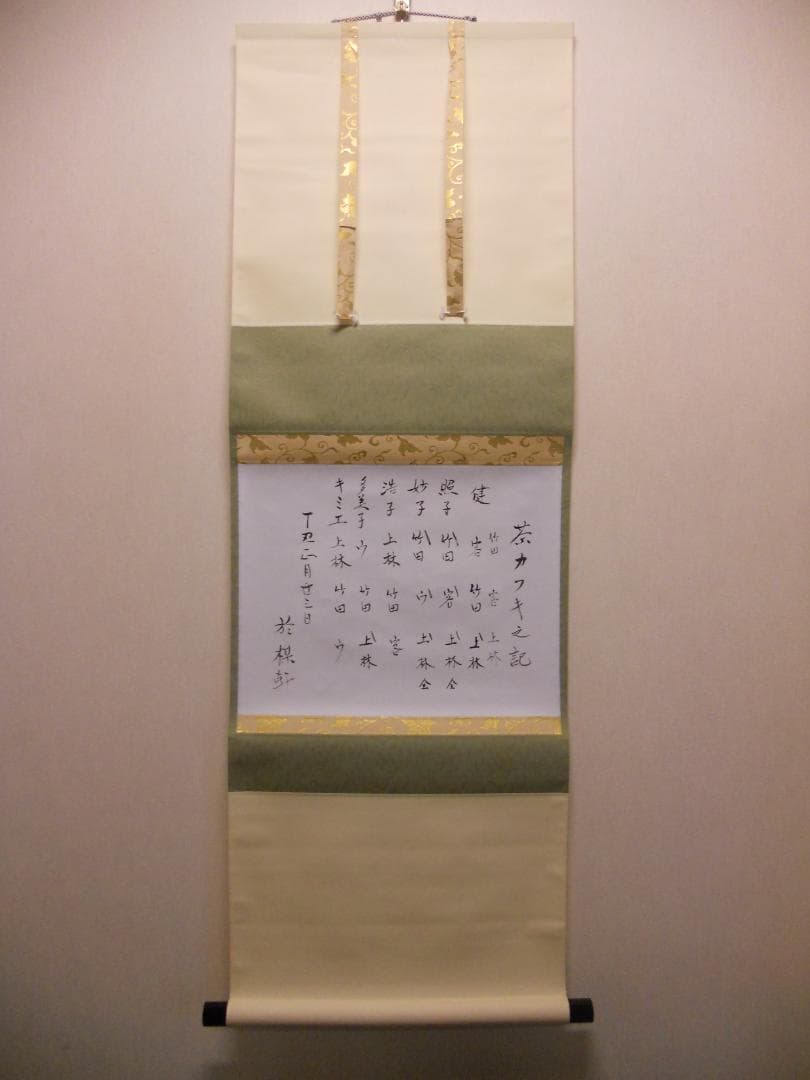 茶カフキ之記
竹田 客 上林
健 客 竹田 上林
照子 竹田 客 上林 全
妙子 竹田 ウ 上林 全
浩子 上林 竹田 客
多美子 ウ 竹田 上林
キミエ 上林 竹田 ウ
丁丑正月廿三日
於 軒